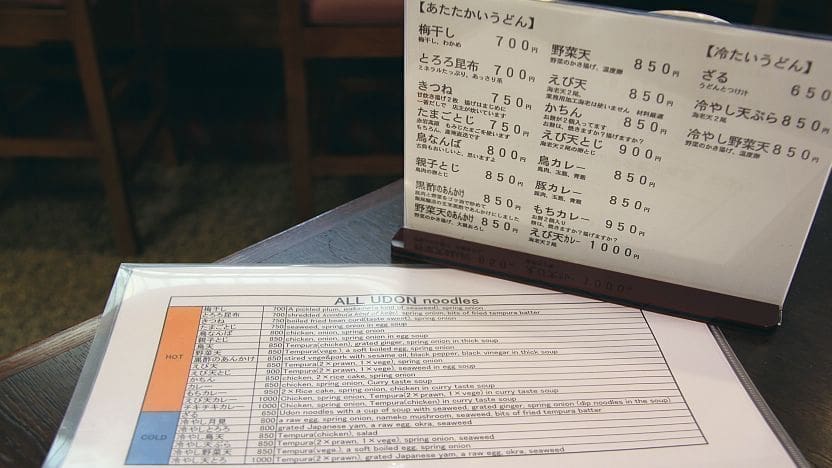 【あたたかいうどん】
梅干し 700円
梅干し、わかめ
とろろ昆布 700円
ミネラルたっぷり、あっさり系
きつね 750円
甘炊き揚げ2枚 揚げはまじめに
一番だしで 店主が炊いています
たまごとじ 750円
もちろん、産地直送です
鳥なんば 800円
古典もおいしいと、思いますよ
親子とじ 850円
鳥肉の卵とじ
黒酢のあんかけ 850円
野菜天のあんかけ 850円
野菜のかき揚げ、大根おろし
野菜天 850円
野菜のかき揚げ、温度卵
えび天 850円
海老天2尾、
業務用加工海老は使いません 材料厳選
かちん 850円
お餅が2個入ってます
お餅は、焼きますか?揚げますか?
えび天とじ 900円
海老天2尾の卵とじ
鳥カレー 850円
鳥肉、玉葱、青葱
豚カレー 850円
豚肉、玉葱、青葱
もちカレー 950円
お餅2個入り
餅は、焼きますか?揚げますか?
えび天カレー 1000円
海老天2尾
【冷たいうどん】
ざる 650
うどんとつけ汁
冷やし天ぷら 850円
海老天2尾、
冷やし野菜天 850円
野菜のかき揚げ、温度卵
ALL UDON noodles
HOT
梅干し 700 A pickled plum, wakame(a kind of seaweed), spring onion
とろろ昆布 700 shredded konbu(a kind of kelp), spring onion, bits of fried tempura batter
きつね 750 boiled fried bean curd(taste sweet), spring onion
たまごとじ 750 seaweed, spring onion in egg soup
鳥なんば 800 chicken, spring onion
親子とじ 850 chicken, spring onion in egg soup
鳥天 850 Tempura(chicken), grated ginger, spring onion in thick soup
野菜天 850 Tempura(vege.), a soft boiled egg, spring onion
黒酢のあんかけ 850 stired vege&pork with sesame oil, black pepper, black vinegar in thick soup
えび天 850 Tempura(2×prawn, 1×vege), spring onion
えび天とじ 900 Tempura(2×prawn, 1×vege), seaweed in egg soup
かちん 850 chicken, 2×rice cake, spring onion
カレー 850 chicken, spring onion, Curry taste soup
もちカレー 950 2×Rice cake, spring onion, chicken in curry taste soup
えび天カレー 1000 Chicken, spring onion, Tempura(2×prawn, 1×vege) in curry taste soup
チキチキカレー 1000 Chicken, spring onion, Tempura(chicken) in curry taste soup
COLD
ざる 650 Udon noodles with a cup of soup with seaweed, grated ginger, spring onion (dip noodles in the soup)
冷やし月見 800 a raw egg, spring onion, nameko mushroom, seaweed, bits of fried tempura batter
冷やしとろろ 800 grated Japanese yam, a raw egg, okra, seaweed
冷やし鳥天 850 Tempura(chicken), salad
冷やし天ぷら 850 Tempura(2×prawn, 1×vege), spring onion, seaweed
冷やし野菜天 850 Tempura(vege.), a soft boiled egg, spring onion
冷やし天とろ 1000 Tempura(2×prawn), grated Japanese yam, a raw egg, okra, seaweed